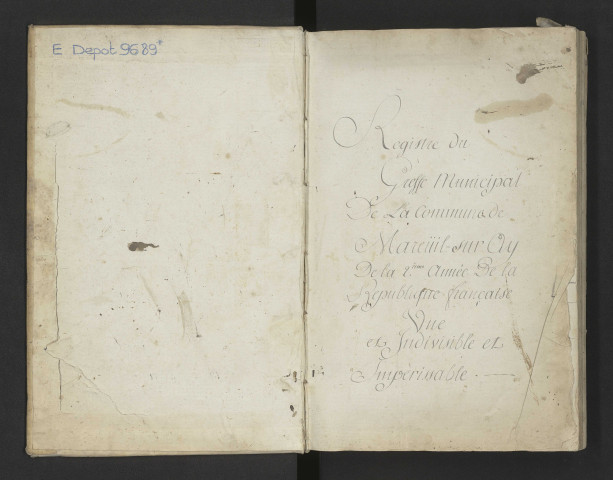 E Depot 9689*
Registre du
Greffe Municipal
De La Commune de
Mareüil-sur Aÿ
De la 2.eme Année De la
Republique française
Vne
et Indivisible et
Imperissable